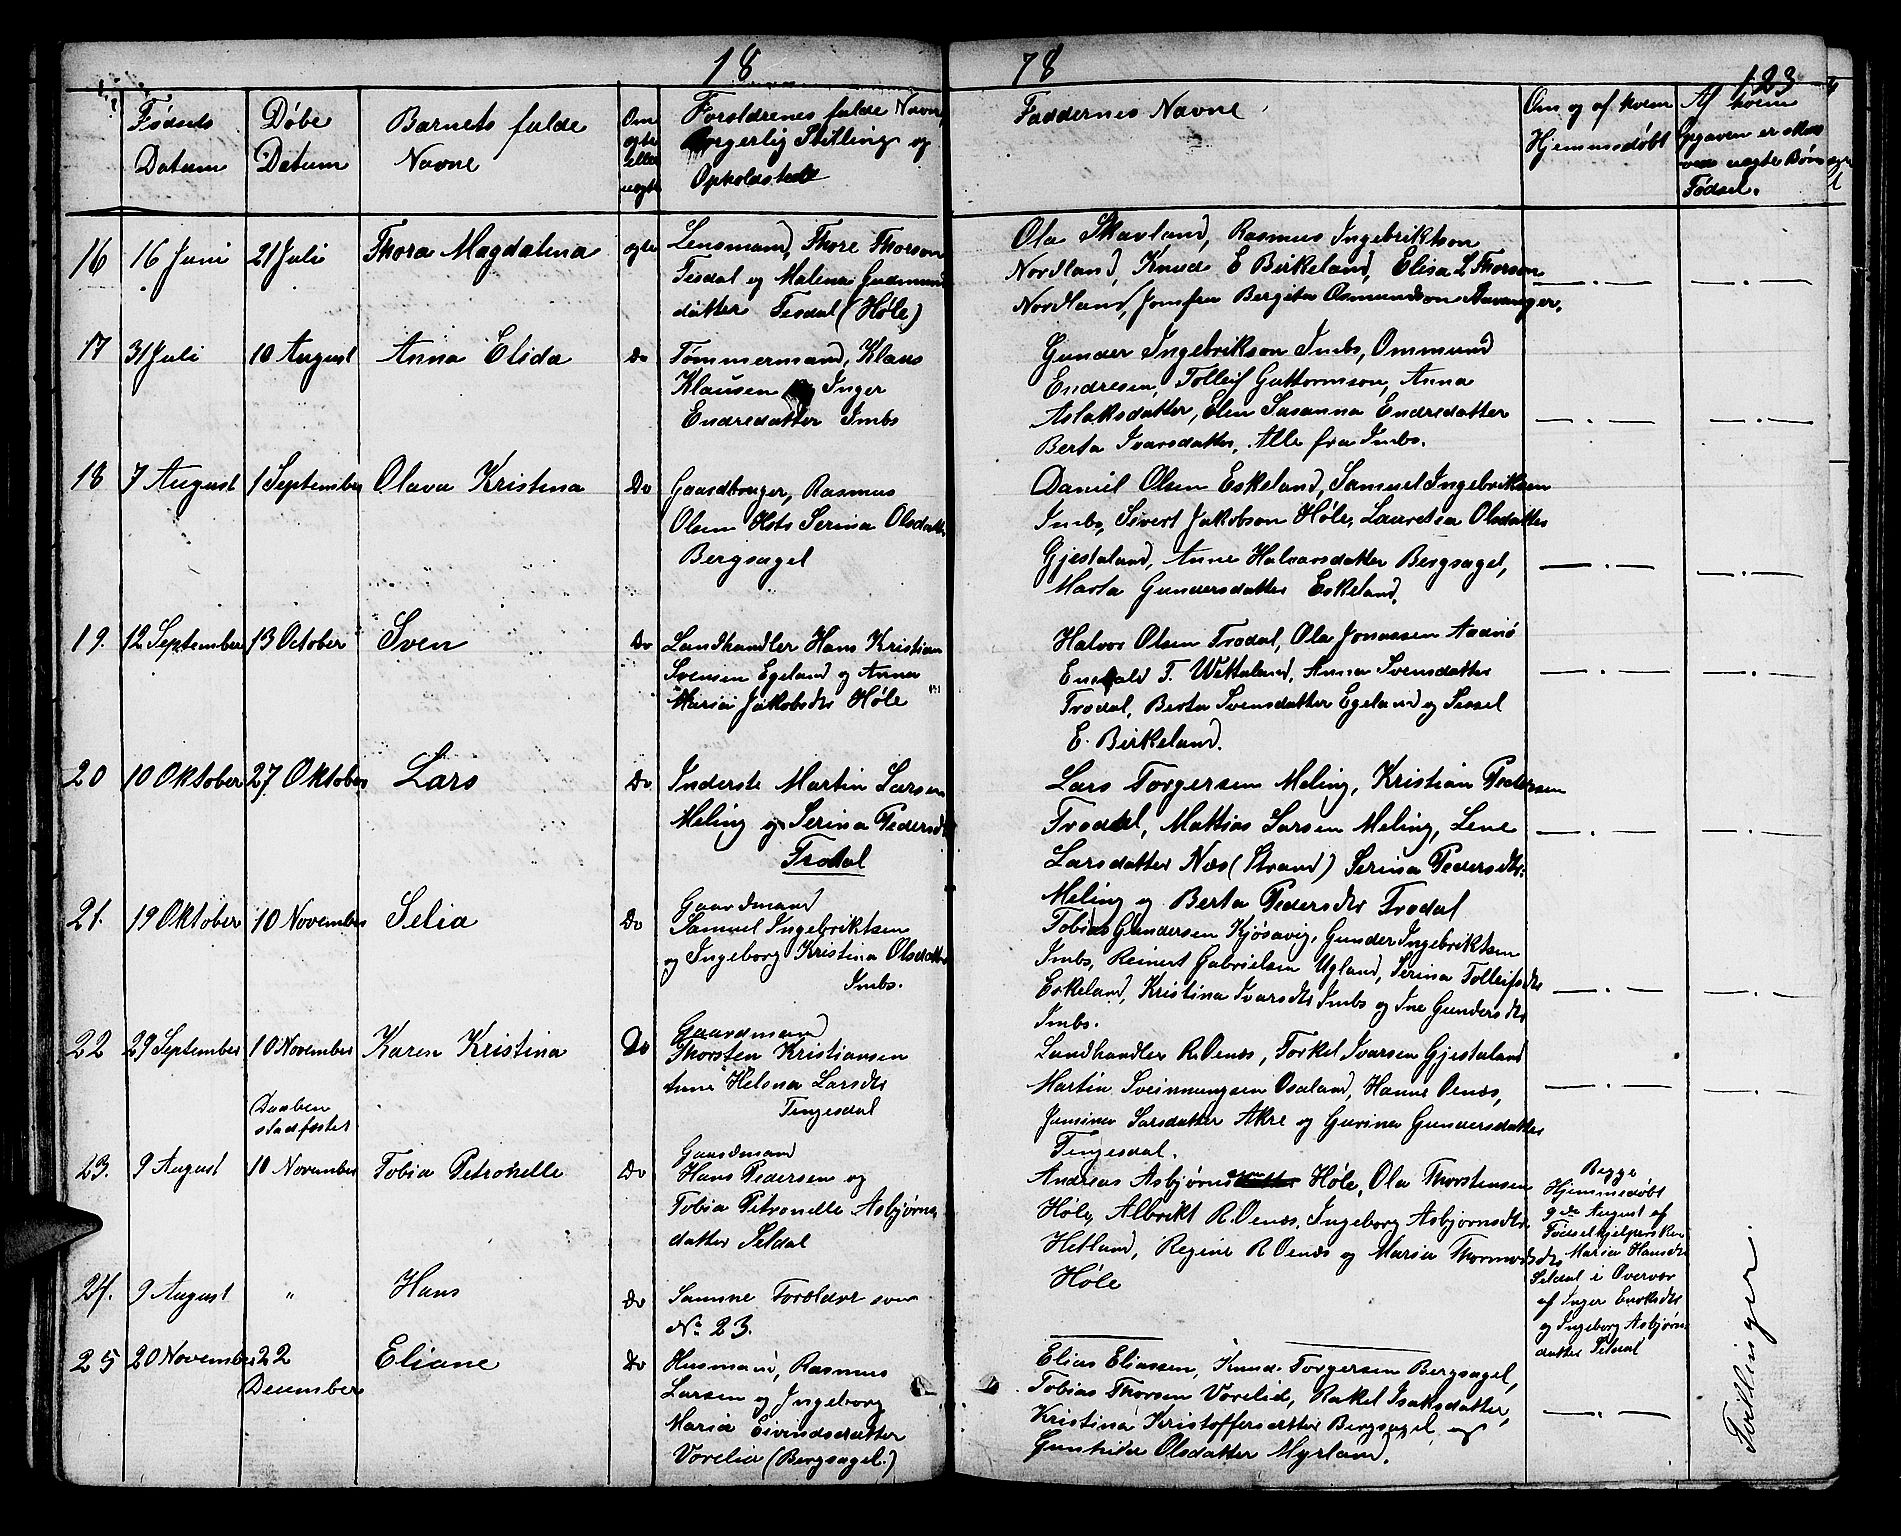 18 78
123
Fødsels Datum
Døbe Datum
Barnets fulde Navne
Om ægte eller uægte
Forældrenes fulde Navne, Borgerlig Stilling og Opholdsted
Faddernes Navne
Om og af hvem Hjemmedøbt
Af hvem Opgaven er skeet uægte Børns Fødsel.
16 16 Juni 21 Juli Thora Magdalina ægte
Lensmand, Thore Thorson
Tesdal og Malena Gudmund
datter Tesdal (Høle)
Ola Skavland, Rasmus Ingebriktson
Nordland, Knud E Birkeland, Elisa L Thorson
Nordland, Jomfru Bergita Osmundson Stavanger.
17 31 Juli 10 August Anna Elida Do
Tømmermand, Klaus
Klausen Inger
Endredatter Imbs
Gunder Ingebrikson Imbs, Ommund
Endresen, Tolleif Guttormson, Anna
Aslaksdatter, Elen Susanna Endredatter
Berta Ivarsdatter. Alle fra Imbs.
18 7 August 1 September Olava Kristina Do
Gaardbruger, Rasmus
Olsen Hots Serina Olsdatter
Bergsagel
Daniel Olsen Eskeland, Samuel Ingebriksen
Imbs, Sivert Jakobson Høle, Lauretsa Olsdatter
Gjestaland, Anne Halvarsdatter Bergsagel,
Marta Gundersdatter Eskeland.
19. 12 September 13 October Sven Do
Landhandler Hans Kristian
Svensen Egeland og Anna
Maria Jakobsdtr Høle
Halvor Olsen Trodal, Ola Jonassen Aadnø
Enevald T. Wetteland, Anna Svensdatter
Trodal, Berta Svensdatter Egeland og Sessel
E. Birkeland.
20 10 Oktober 27 Oktober Lars Do
Inderste Martin Larsen
Meling og Serina Pedersdtr
Trodal
Lars Torgersen Meling, Kristian Pedersen
Trodal, Mattias Larsen Meling, Lene
Larsdatter Næs (Strand) Serina Pedersdtr.
Meling og Berta Pedersdtr Trodal
21. 19 Oktober 10 November Selia Do
Gaardmand
Samuel Ingebriktsen
og Ingeborg Kristina Olsdatter
Imbs.
Tobias Gundersen Kjøsavig, Gunder Ingebriktsen
Imbs, Reinert Gabrielsen Ugland, Serina Tolleifsdtr
Eskeland, Kristina Ivarsdtr Imbs og Ine Gundersdtr
Imbs.
22 29 September 10 November Karen Kristina Do
Daaben
stadfæstet
Gaardmand
Thorsten Kristiansen
Helena Larsdtr
Tengesdal
Landhandler R. Oenæs, Torkel Ivarsen Gjestaland
Martin Sveinungsen Osaland, Hanne Oenæs,
Jensine Larsdatter Akre og Gurina Gundersdatter
Tengesdal.
23. 9 August 10 November Tobia Petronelle Do
Gaardmand
Hans Pedersen og
Tobia Petronelle Asbjørns
datter Seldal
Andreas Asbjørnsen Høle, Ola Thorstensen
Høle, Albrikt R. Oenæs, Ingeborg Asbjørnsdtr
Hetland, Regine R Oenæs og Maria Thormodsdtr
Høle
Begge
Hjemmedøbt
9de August af
Fødselhjelpersken
Maria Hansdtr
Seldal i Overvær
af Inger Eriksdtr
og Ingeborg Asbjørns
datter Seldal
24. 9 August " Hans Do
Samme Forældre som
No 23.
Tvillinger
25 20 November 22 December Eliane Do
Husmand, Rasmus
Larsen og Ingeborg
Maria Eivindsdatter
Vorelia (Bergsagel.)
Elias Eliassen, Knud Torgersen Bergsagel,
Tobias Thorsen Vorelid, Rakel Isaksdatter,
Kristina Kristoffersdatter Bergsagel og
Gunhilda Olsdatter Myrland.